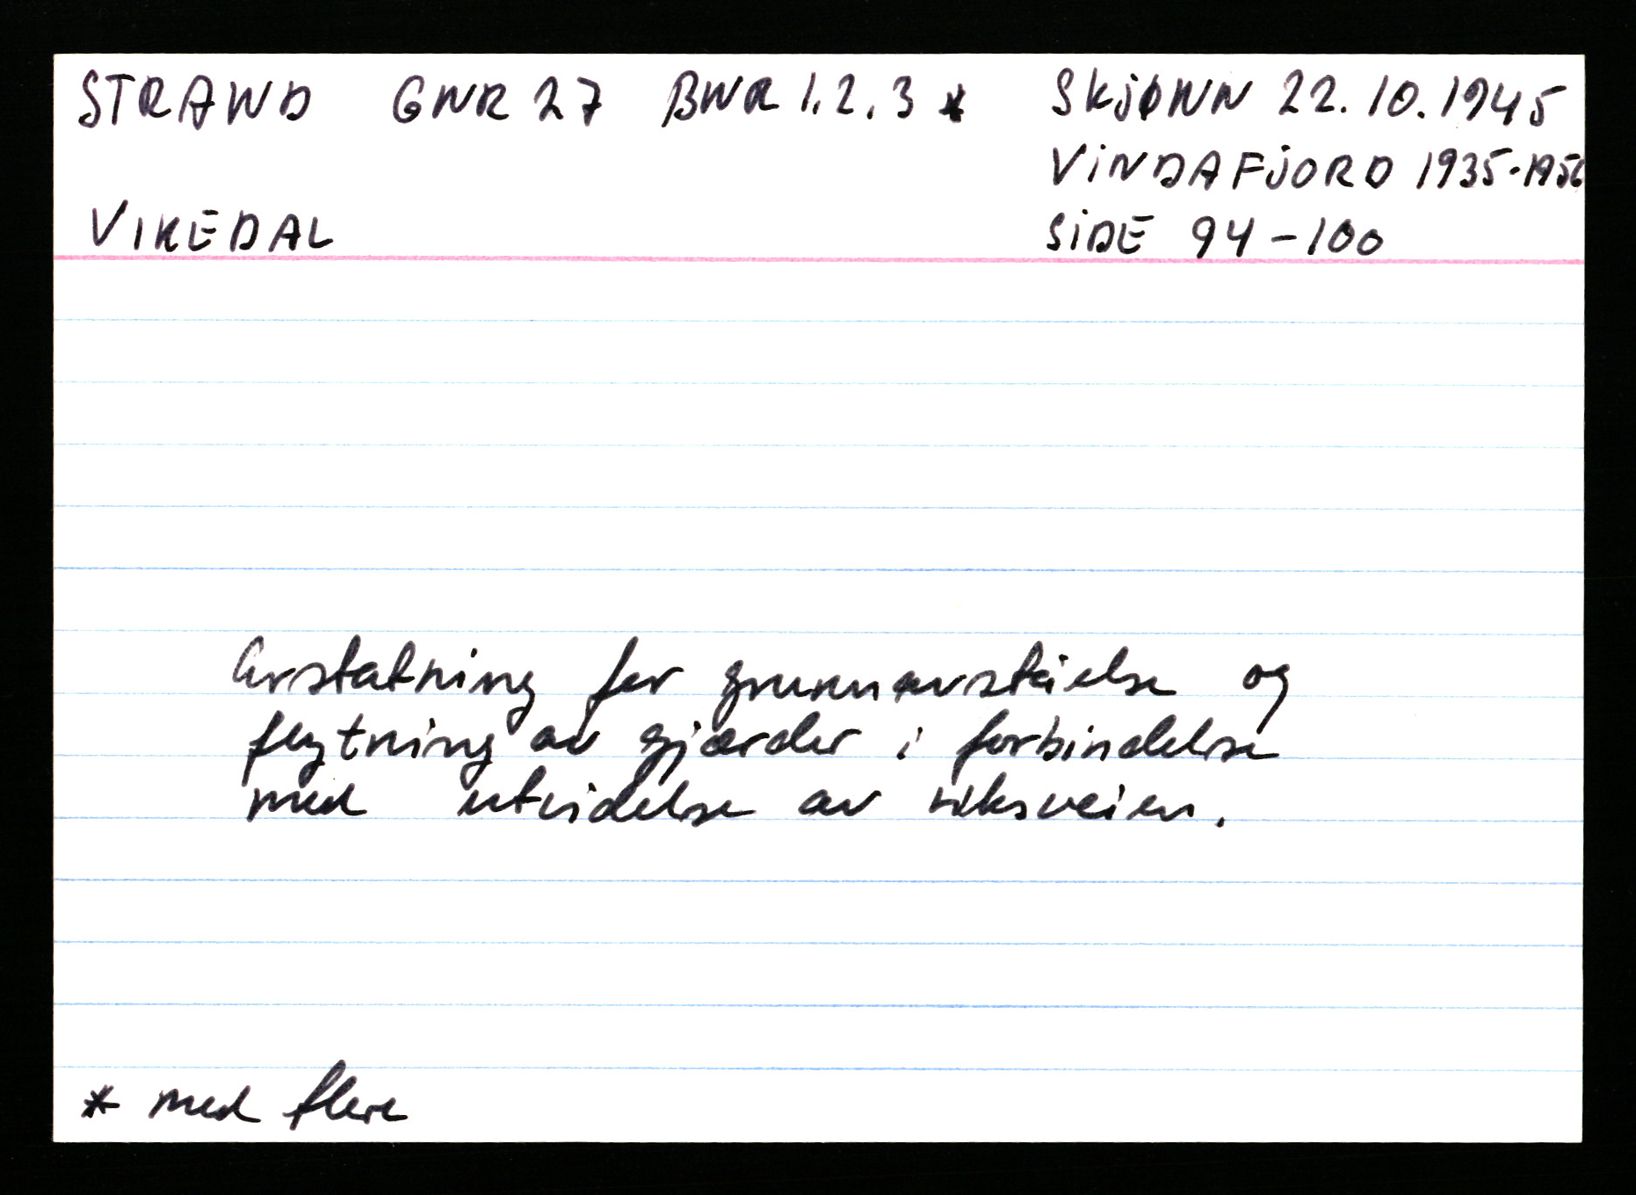 STRAND GNR 27 BNR 1.2.3 * SKJØNN 22.10.1945
VINDAFJORD 1935-195
VIKEDAL SIDE 94-100
Erstatning for grunnavståelse og
flytning av gjærder i forbindelse
med utvidelse av riksveien.
* med flere